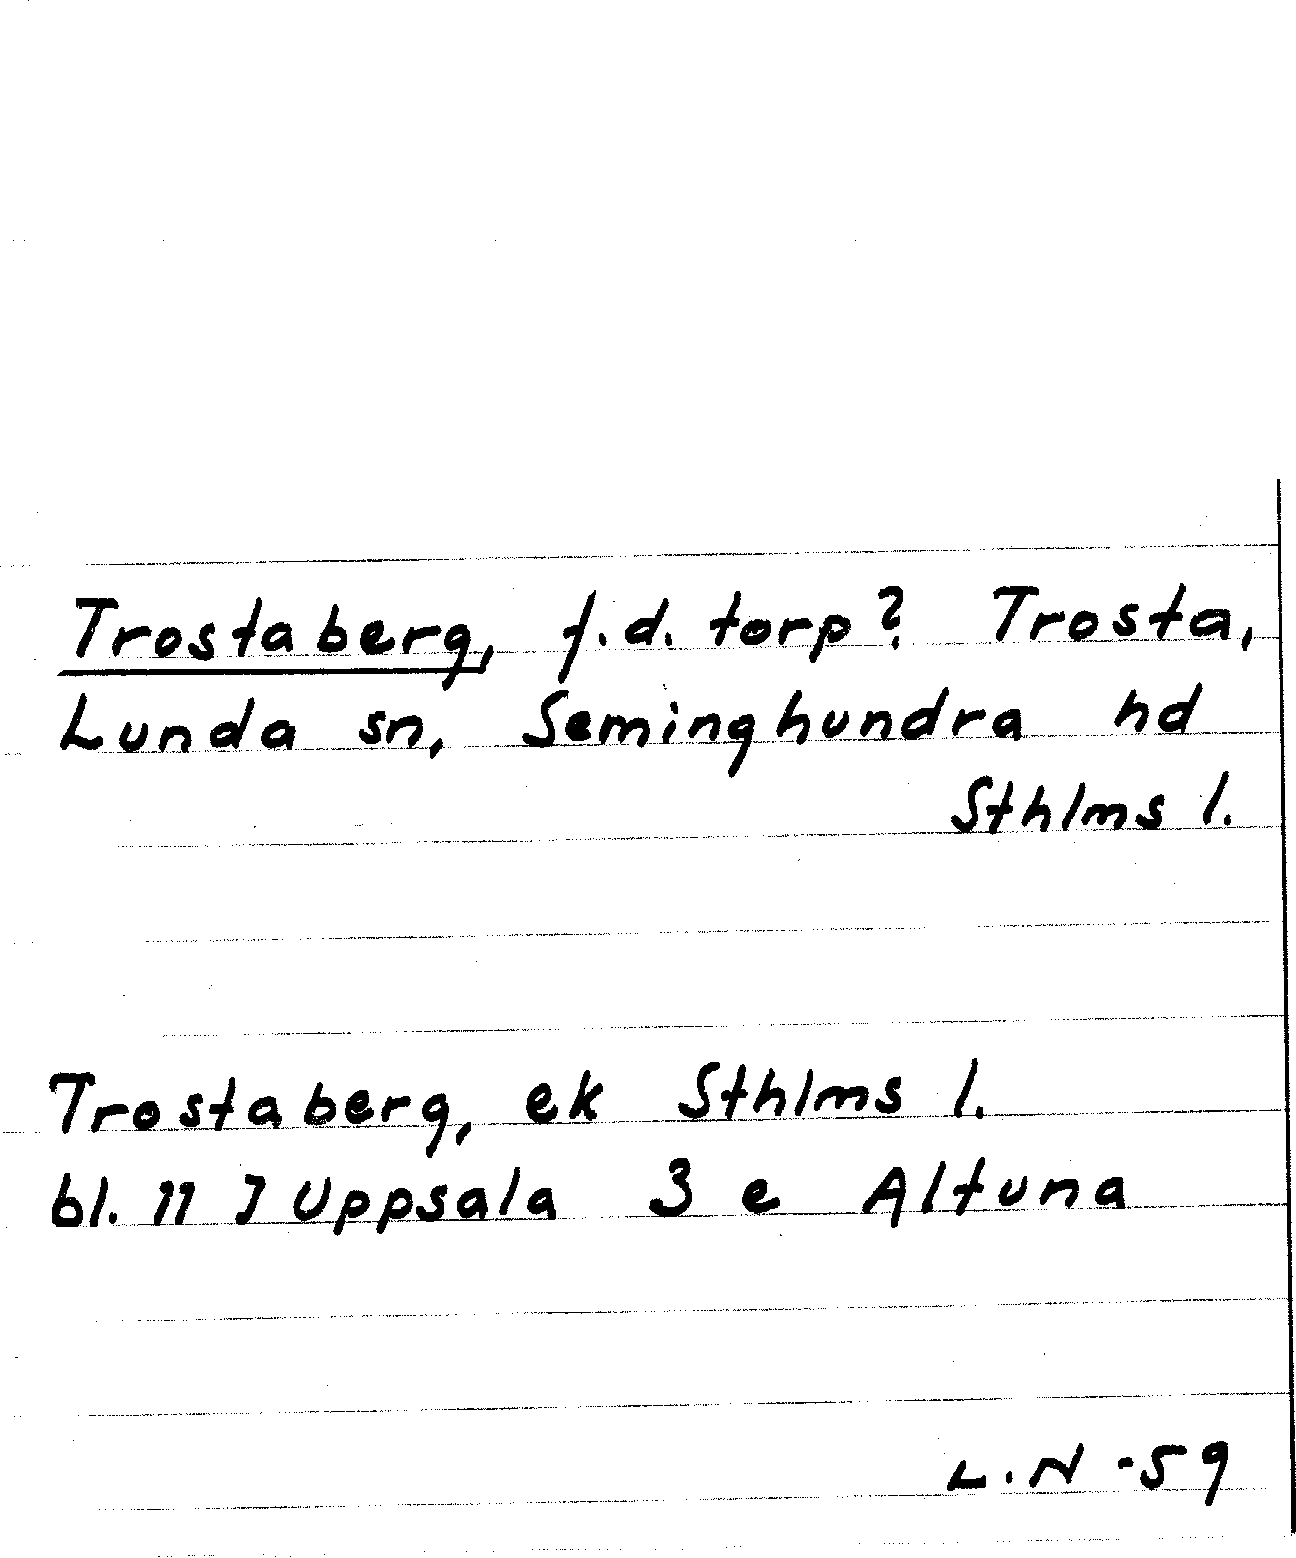 Trostaberg, f.d. torp? Trosta,
Lunda sn, Seminghundra hd
Sthlms l.
Trostaberg, ek Sthlms l.
bl. 11 I Uppsala 3 e Altuna
L.N -59